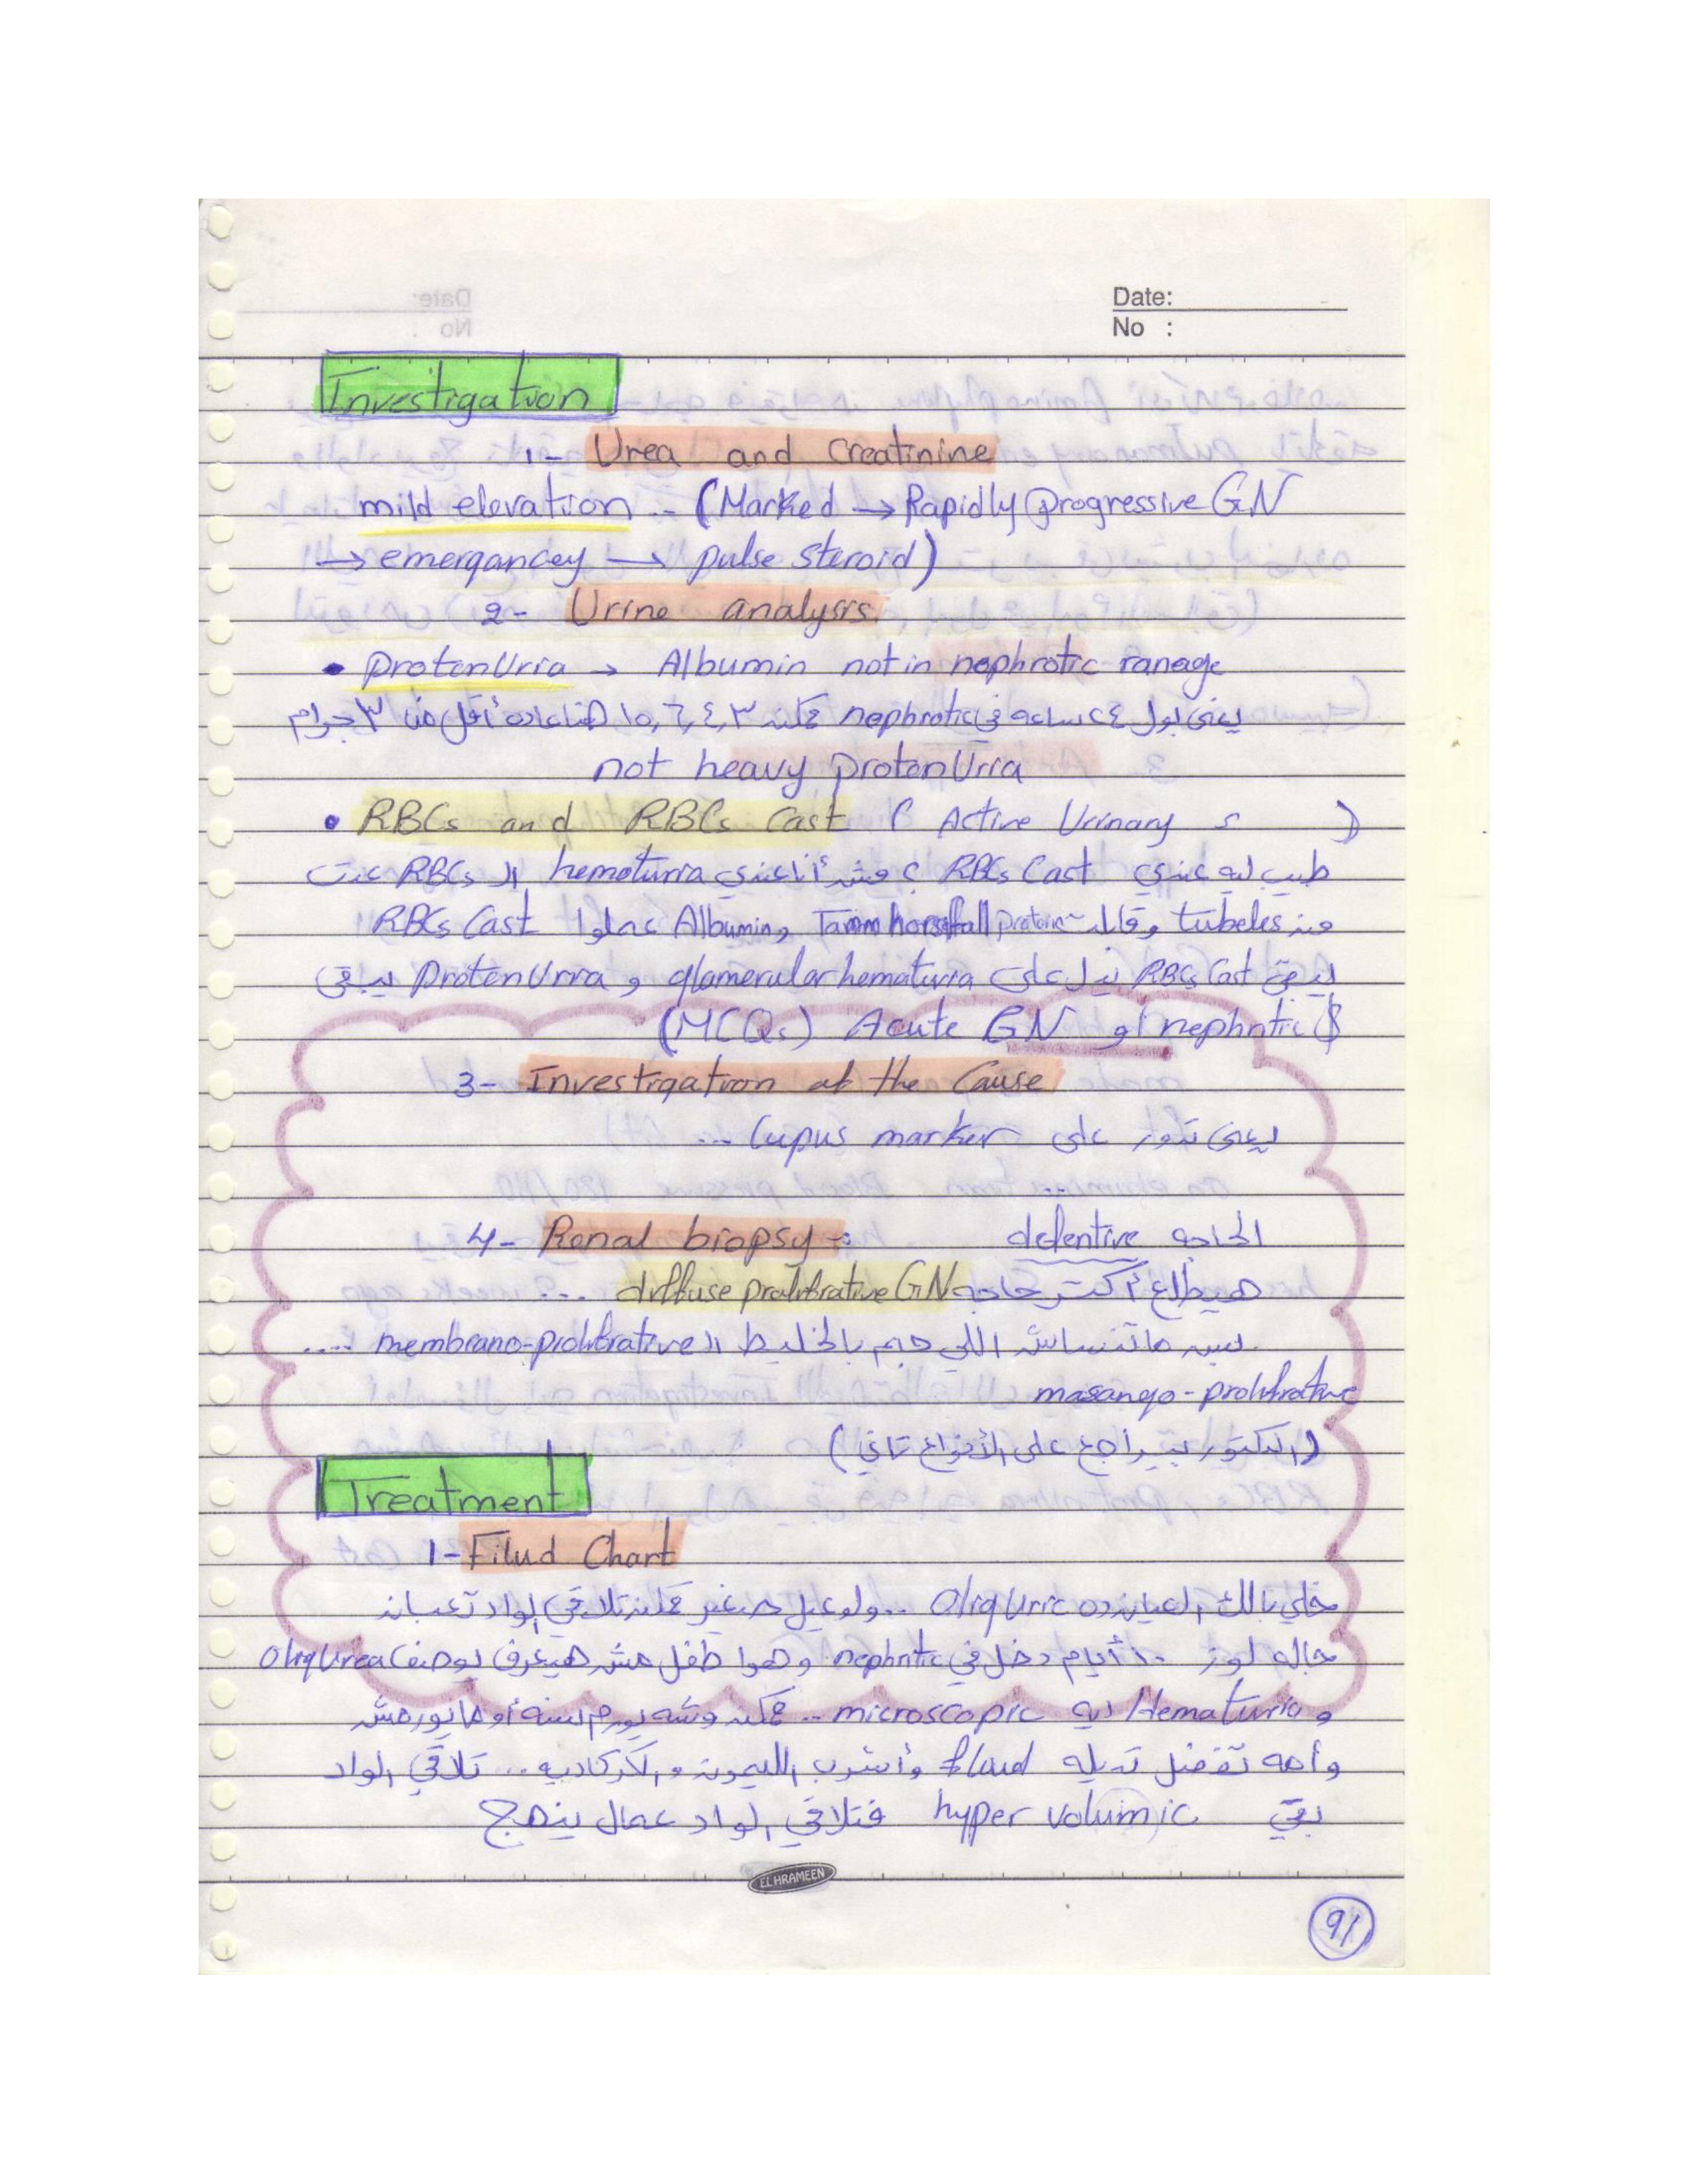 Date:
No :
Investigation
1- Urea and Creatinine
mild elevation .. (Marked → Rapidly Progressive GN
→ emergancey → pulse steroid)
2- Urine analysis
• ProtenUria → Albumin not in nephrotic ranage
يعنى بول ٢٤ ساعه فى nephrotic ممكن ٣, ٤, ٦, ١٥ هنا عاده أقل من ٣ جرام
not heavy protenUria
• RBCs and RBCs Cast ( Active Urinary s )
طيب ليه عندي RBCs Cast ؟ مش أنا عندي hematuria الـ RBCs عدت
من tubeles وقابلت Tamm horsfall protein و Albumin عملوا RBCs Cast
يبقى RBCs Cast تدل على glamerular hematuria و ProtenUria يبقى
nephritic $ أو Acute GN (MCQs)
3- Investigation of the Cause
يعنى تدور على Lupus marker ...
4- Renal biopsy -: الحاجه defentive
هيطلع أكتر حاجه diffuse prolifrative GN ...
بس ماتنساش اللي جم بالخليط الـ membrano-prolifrative ....
masango-prolifrative
(الدكتور بيراجع على الأنواع تاني)
Treatment
1- Filud Chart
خلي بالك العيان ده OligUric .. ولو عيل صغير ممكن تلاقي الواد تعبان
حاله لوز ١٠ أيام دخل في nephritic وهوا طفل مش هيعرف يوصف OligUrea
و Hematuria ايه microscopic .. ممكن وشه يورم لسنه أو مايورمش
وأمه تفضل تديله fluid وأشرب الليمون والكركاديه ... تلاقي الواد
بقى hyper volumic فتلاقي الواد عمال ينهج
EL HRAMEEN
91